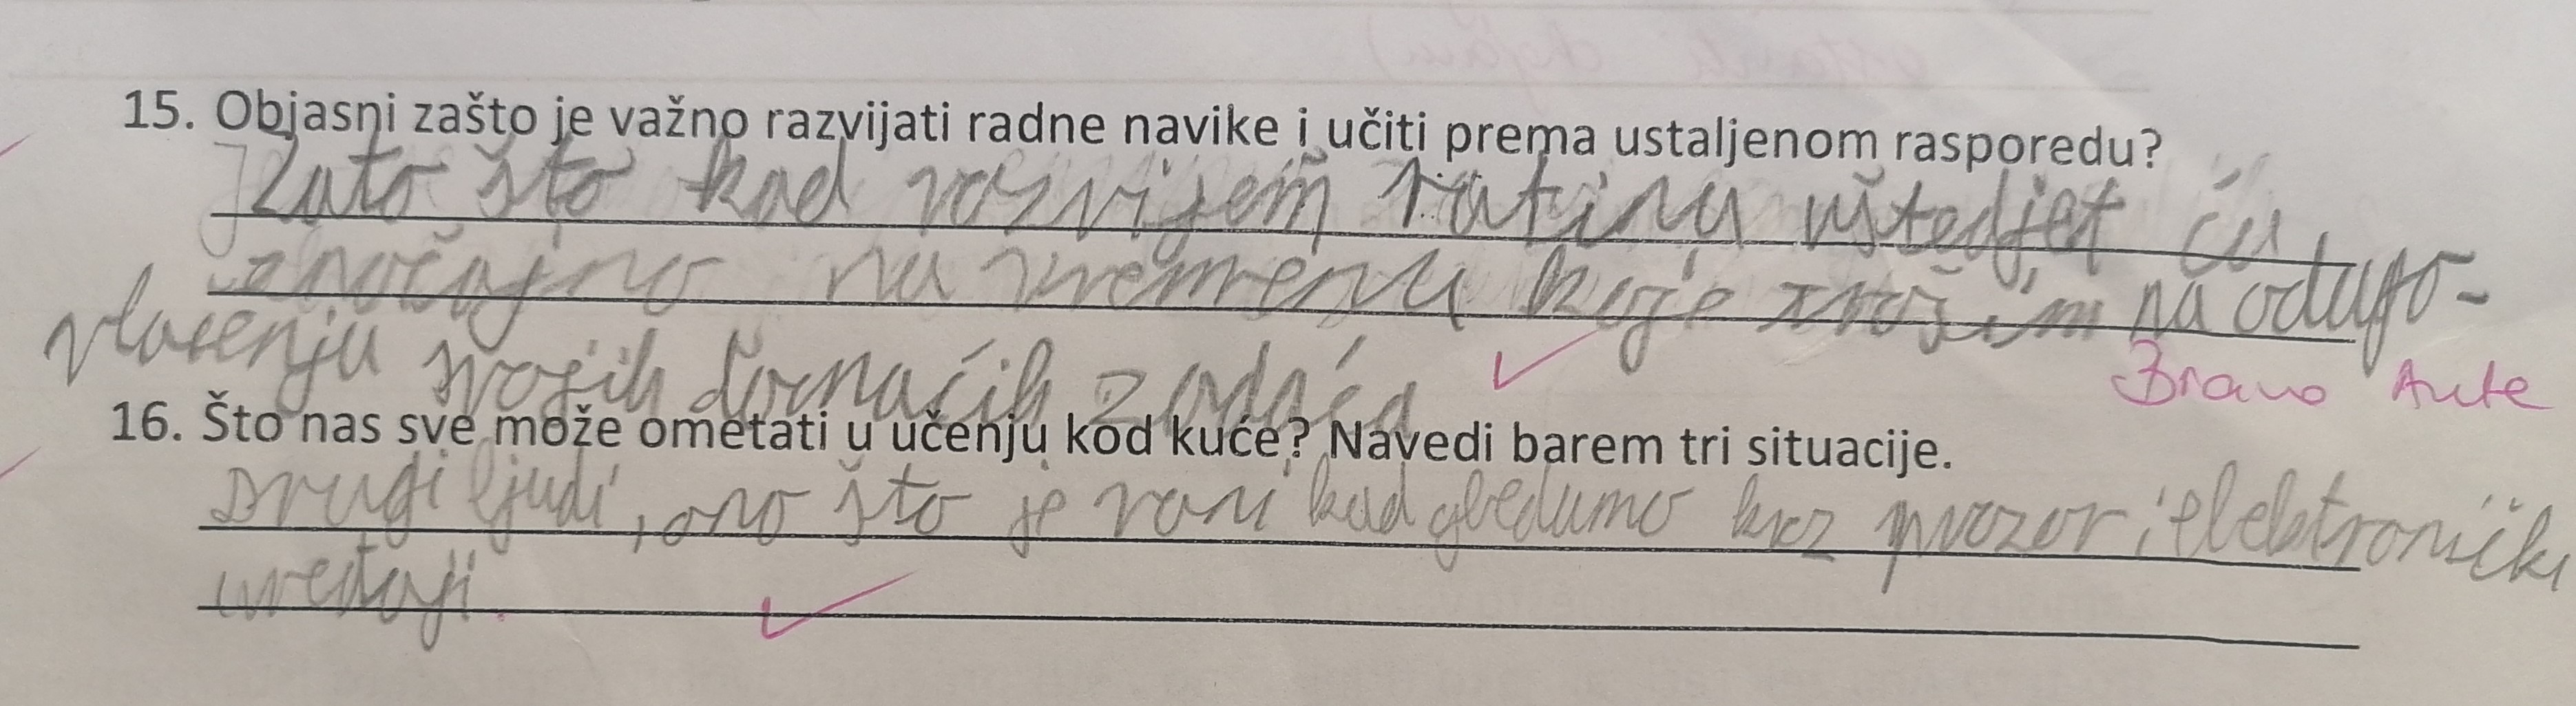 15. Objasni zašto je važno razvijati radne navike i učiti prema ustaljenom rasporedu?
Zato što kad razvijem rutinu uštedjet ću
značajno na vremenu koje trošim na odugo-
vlačenju svojih domaćih zadaća
Bravo Ante
16. Što nas sve može ometati u učenju kod kuće? Navedi barem tri situacije.
Drugi ljudi, ono što je vani kad gledamo kroz prozor i elektronički
uređaji.